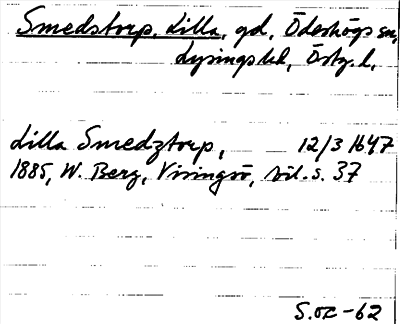 Smedstorp, Lilla, gd, Ödeshögs sn,
Lysings hd, Östg. l,
Lilla Smedztorp, 12/3 1647
1885, W. Berg, Visingsö, bil. s. 37
S.oc -62